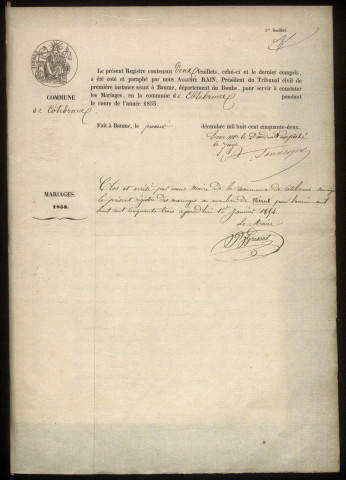 1er feuillet.
Le présent Registre contenant Deux feuillets, celui-ci et le dernier compris,
a été coté et paraphé par nous Augustin RAIN, Président du Tribunal civil de
première instance séant à Baume, département du Doubs, pour servir à constater
les Mariages, en la commune de Côtebrune pendant
le cours de l'année 1853.
COMMUNE
de Côtebrune
Fait à Baume, le premier décembre mil huit cent cinquante-deux.
Pour Mr le Président empêché
le juge
MARIAGES.
1853.
Clos et arrêté par nous Maire de la commune de Côtebrune
le présent registre des mariages au nombre de pour l'année mil
huit cent cinquante trois aujourd'hui 1er Janvier 1854.
Le Maire